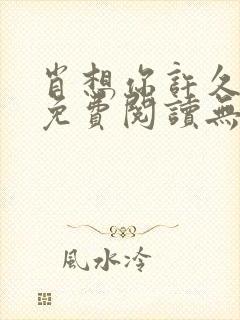 肖想你許久
免費閱讀無
風水冷